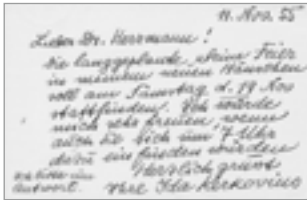 11. Nov. 55
Lieber Dr. Herrmann!
Die langgeplante kleine Feier
in meinem neuen Häuschen
soll am Samstag d. 19 Nov
stattfinden. Ich würde
mich sehr freuen, wenn
auch Sie sich um 7 Uhr
dazu einfinden würden
Herzlich grüsst
Ihre Ida Kerkovius
Antwort.